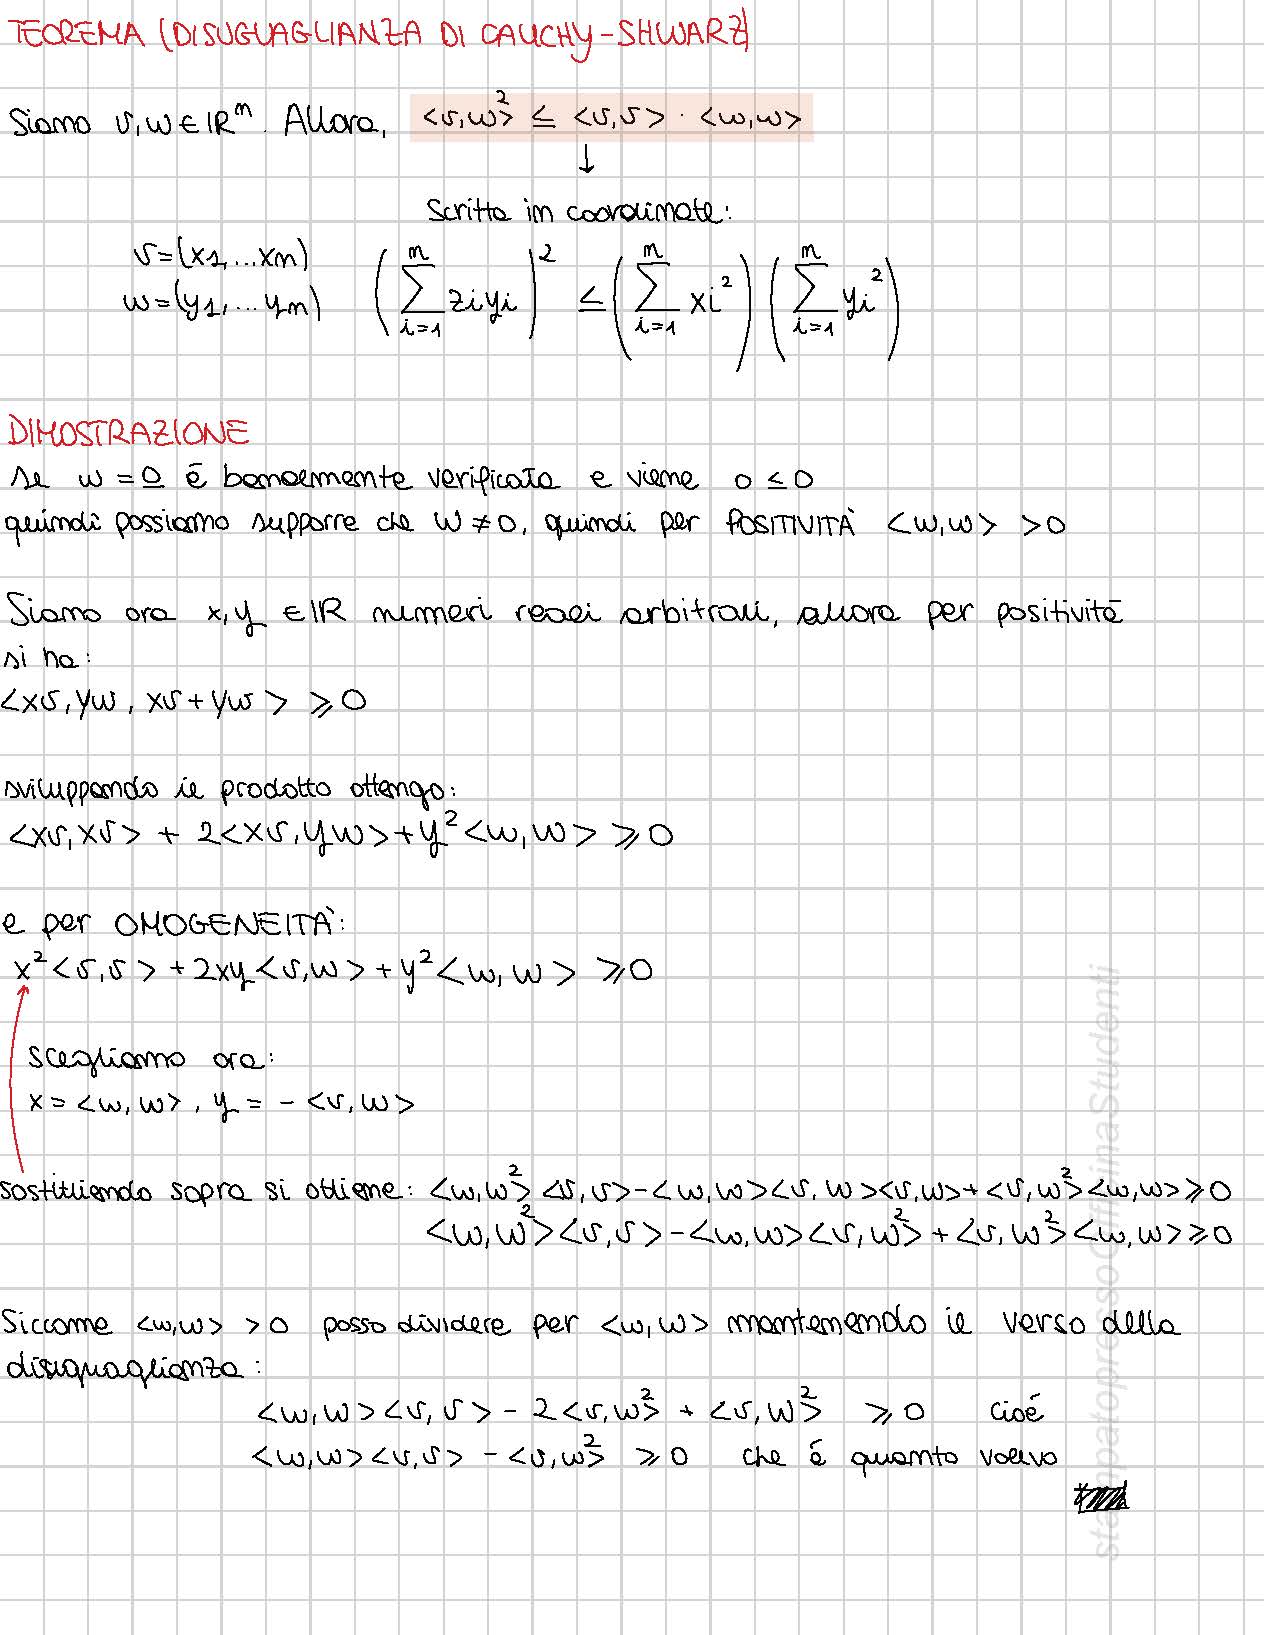 TEOREMA (DISUGUAGLIANZA DI CAUCHY-SHWARZ)
Siano v, w ∈ ℝⁿ. Allora, <v,w>² ≤ <v,v> · <w,w>
↓
Scritta in coordinate:
v=(x1,...xn)
w=(y1,...yn)
(∑ⁿᵢ₌₁ zi yi)² ≤ (∑ⁿᵢ₌₁ xi²) (∑ⁿᵢ₌₁ yi²)
DIMOSTRAZIONE
se w = 0 é banalmente verificata e viene 0 ≤ 0
quindi possiamo supporre che w ≠ 0, quindi per POSITIVITÀ <w,w> > 0
Siano ora x,y ∈ ℝ numeri reali arbitrari, allora per positività
si ha:
<xv, yw, xv + yw> ⩾ 0
sviluppando il prodotto ottengo:
<xv,xv> + 2<xv,yw> + y²<w,w> ⩾ 0
e per OMOGENEITÀ:
x²<v,v> + 2xy<v,w> + y²<w,w> ⩾ 0
scegliamo ora:
x = <w,w>, y = - <v,w>
sostituendo sopra si ottiene: <w,w>²<v,v> - <w,w><v,w><v,w> + <v,w>²<w,w> ⩾ 0
<w,w²><v,v> - <w,w><v,w>² + <v,w>²<w,w> ⩾ 0
Siccome <w,w> > 0 posso dividere per <w,w> mantenendo il verso della
disiguaglianza:
<w,w><v,v> - 2<v,w>² + <v,w>² ⩾ 0 cioé
<w,w><v,v> - <v,w>² ⩾ 0 che é quanto volevo
stampatopressoOfficinaStudenti